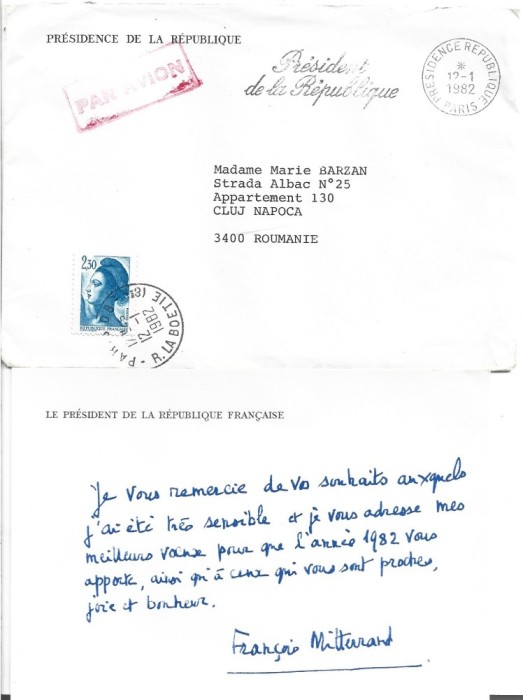 PRÉSIDENCE DE LA RÉPUBLIQUE
PAR AVION
Président
de la République
PRÉSIDENCE RÉPUBLIQUE
*
12-1
1982
PARIS
Madame Marie BARZAN
Strada Albac N°25
Appartement 130
CLUJ NAPOCA
3400 ROUMANIE
2,30
RÉPUBLIQUE FRANÇAISE
12-1
1982
R. LA BOETIE
LE PRÉSIDENT DE LA RÉPUBLIQUE FRANÇAISE
Je vous remercie de vos souhaits auxquels
j'ai été très sensible et je vous adresse mes
meilleurs vœux pour que l'année 1982 vous
apporte, ainsi qu'à ceux qui vous sont proches,
joie et bonheur.
François Mitterrand